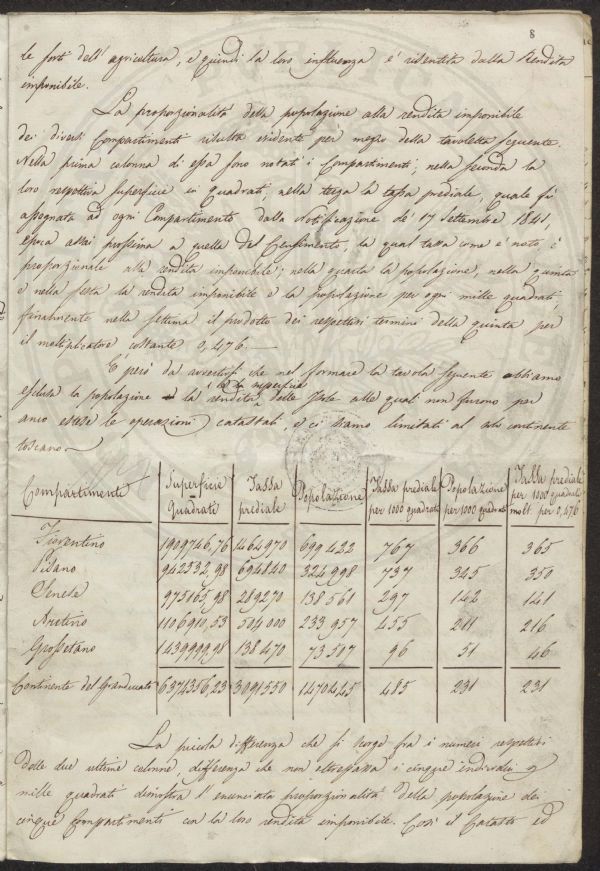 8
le forti dell'agricoltura, e quindi la loro influenza è risentita dalla Rendita
imponibile.
La proporzionalità della popolazione alla rendita imponibile
dei diversi Compartimenti risulta evidente per mezzo della tavoletta seguente.
Nella prima colonna di essa sono notati i Compartimenti; nella seconda la
loro respettiva superficie in quadrati nella terza la tassa prediale, quale fù
assegnata ad ogni Compartimento dalla Notificazione de' 17 Settembre 1841,
epoca assai prossima a quella del Censimento, la qual tassa come è noto, è
proporzionale alla rendita imponibile; nella quarta la popolazione, nella quinta
e nella sesta la rendita imponibile e la popolazione per ogni mille quadrati,
finalmente nella settima il prodotto dei respettivi termini della quinta per
il moltiplicatore costante 0,476.—
È però da avvertirsi che nel formare la tavola seguente abbiamo
e la superficie
esclusa la popolazione la rendita delle Isole alle quali non furono per
anco estese le operazioni catastali, e ci siamo limitati al solo continente
toscano—
Compartimenti Superficie Quadrati Tassa prediale Popolazione Tassa prediale per 1000 quadrati Popolazione per 1000 quadrati Tassa prediale per 1000 quadrati molt. per 0,476
Fiorentino 1909746,76 1464970 699422 767 366 365
Pisano 942332,98 694840 324998 737 345 350
Senese 975165,98 289270 138561 297 142 141
Aretino 1106910,53 504000 233957 455 211 216
Grossetano 1439999,98 138470 73507 96 51 46
Continente del Granducato 6374356,23 3091550 1470445 485 231 231
La piccola differenza che si scorge fra i numeri respettivi
delle due ultime colonne, differenza che non oltrepassa i cinque individui
mille quadrati dimostra l'enunciata proporzionalità della popolazione dei
cinque compartimenti con la loro rendita imponibile. Così il Catasto ed